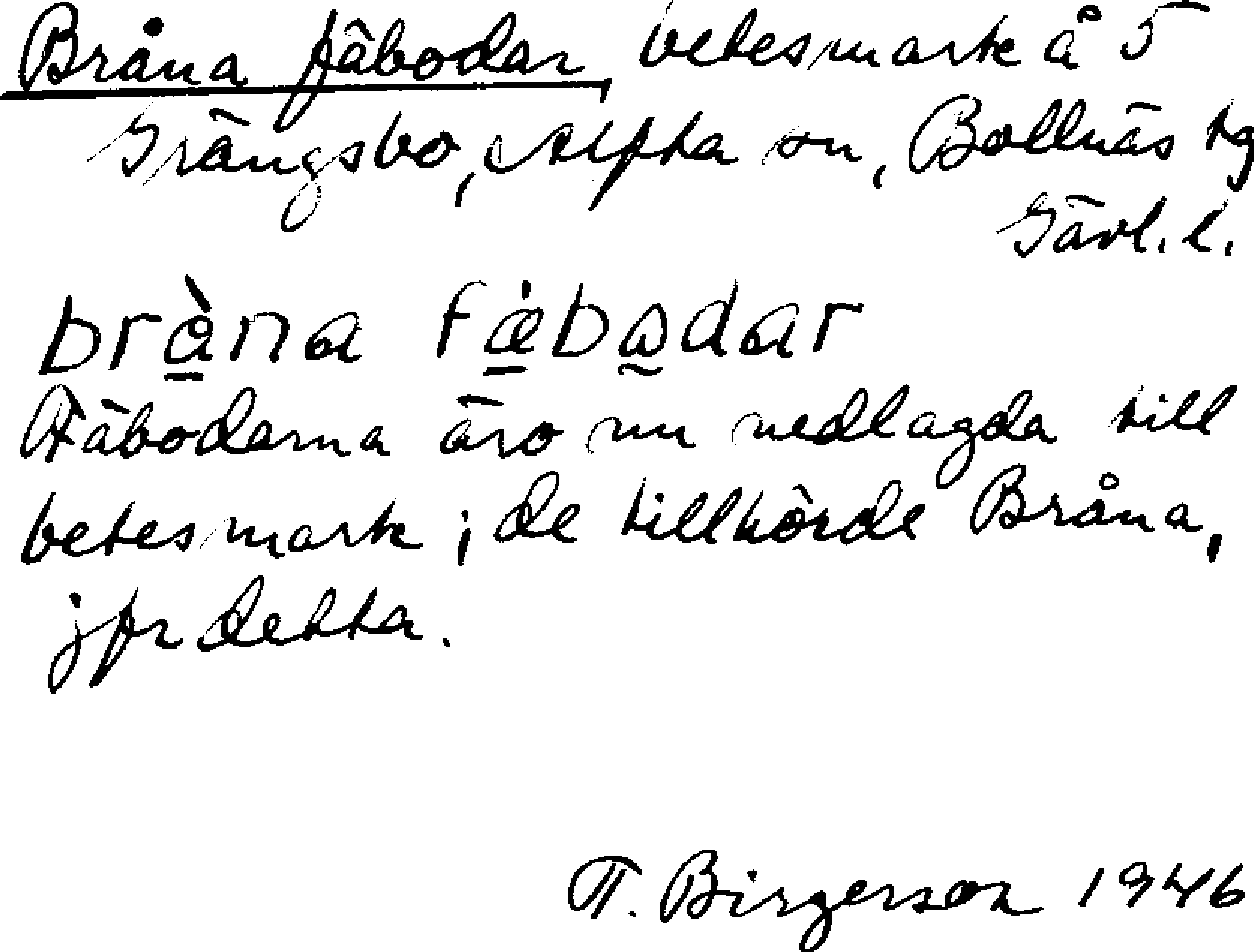 Bråna fäbodar, betesmark å 5
Grängsbo, Alfta sn, Bollnäs tg
Gävl. l.
bràna fǽbodar
Fäboderna äro nu nedlagda till
betesmark; de tillhörde Bråna,
jfr detta.
T. Birgerson 1946